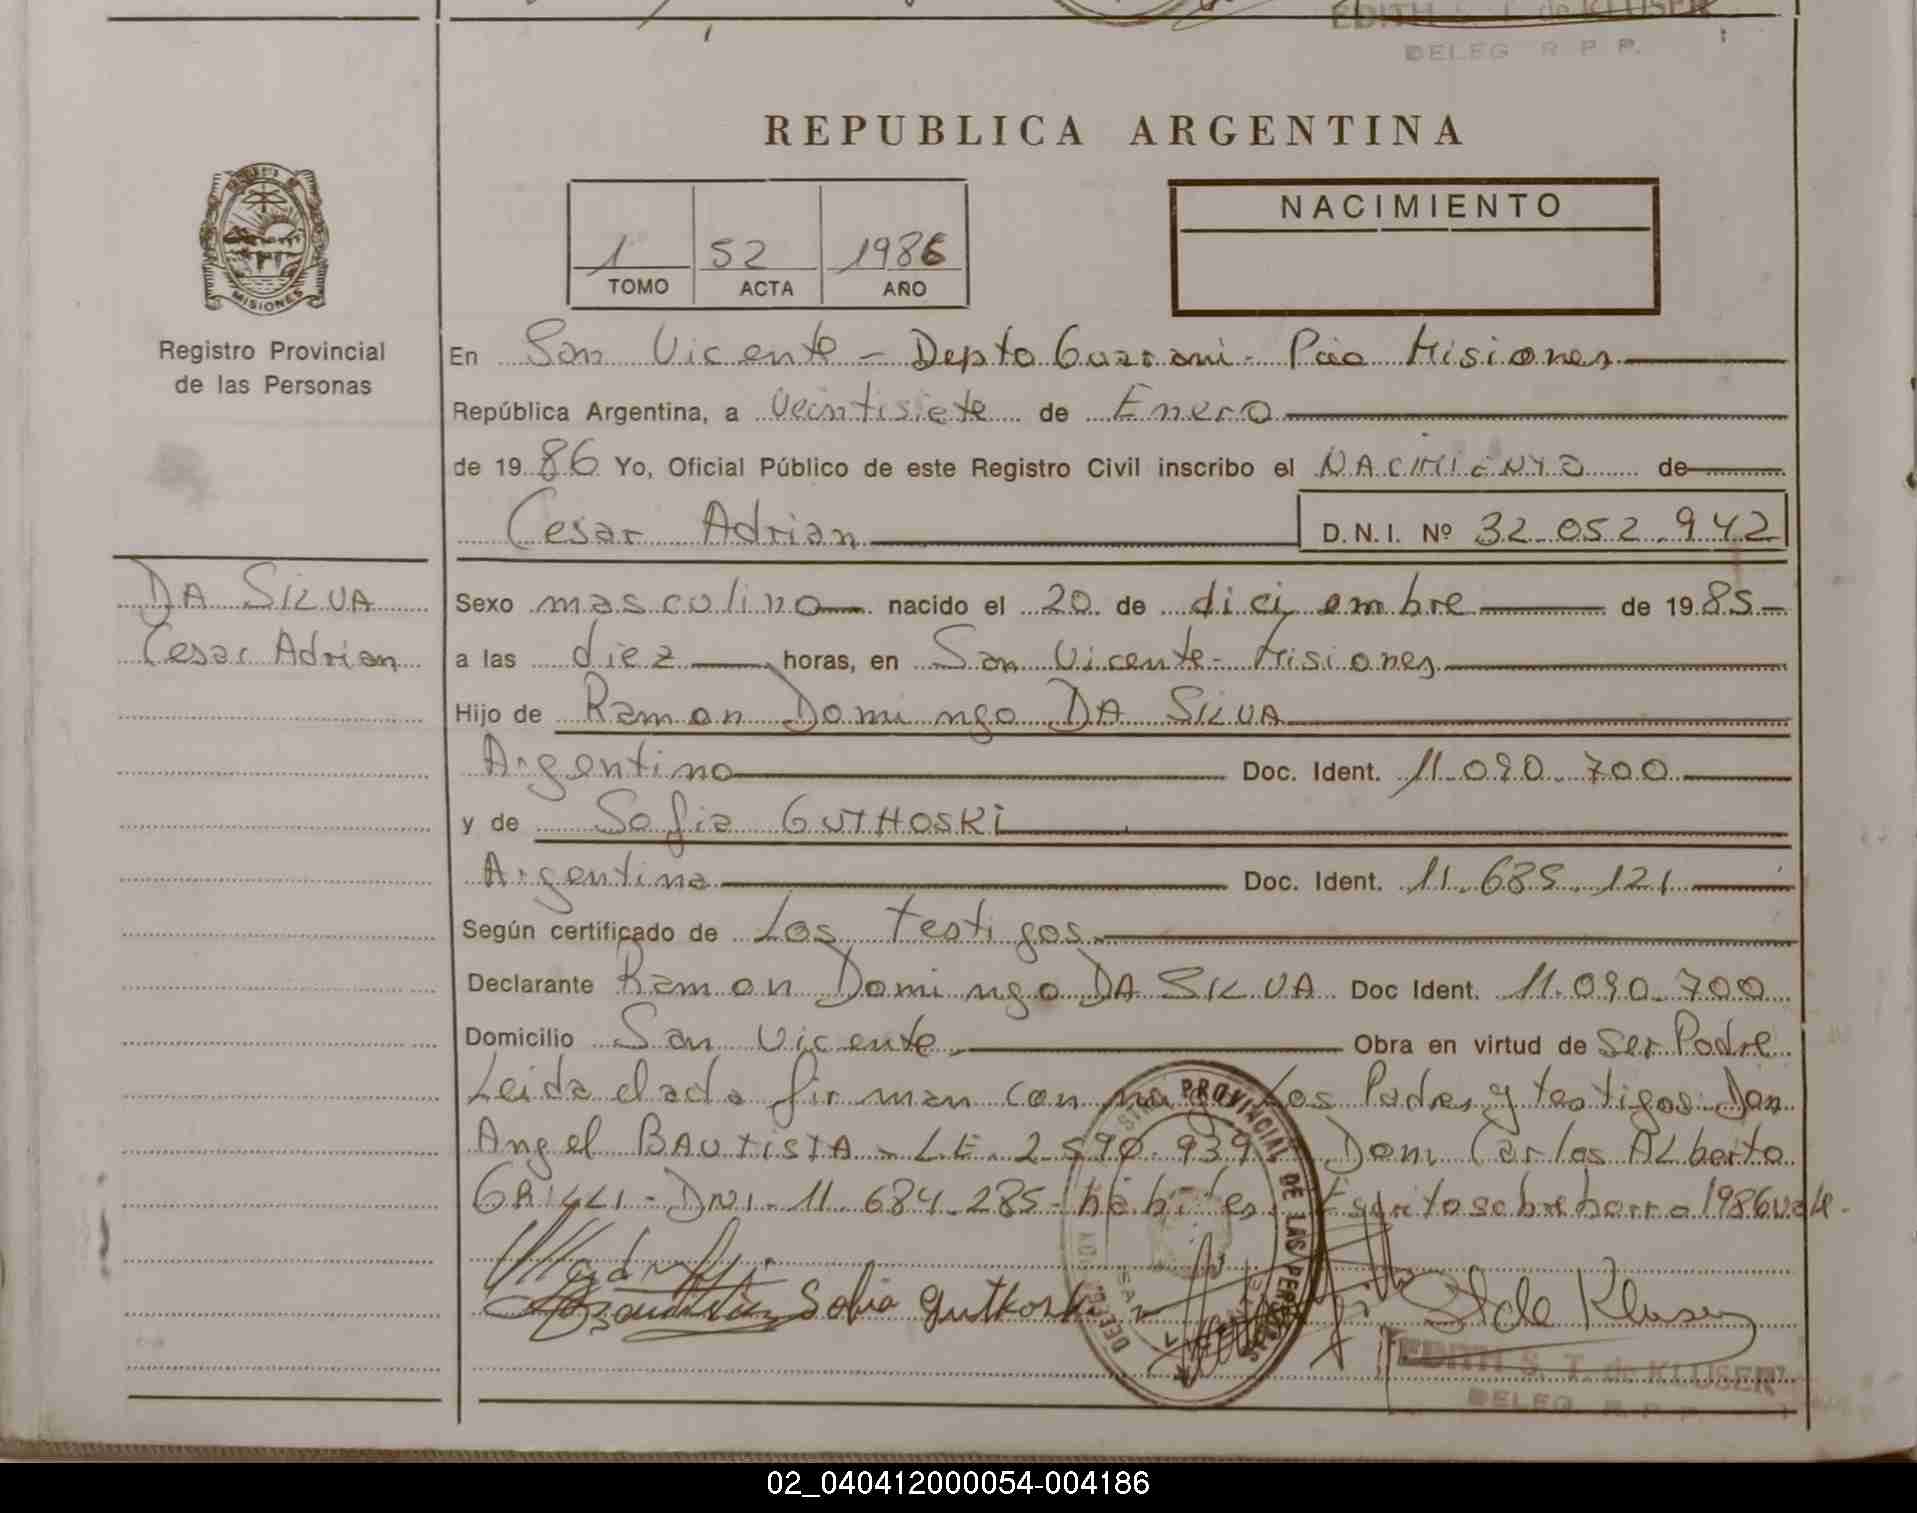 EDITH S. T. de KLUSER
DELEG R P P.
REPUBLICA ARGENTINA
MISIONES
Registro Provincial
de las Personas
1 52 1986
TOMO ACTA AÑO
NACIMIENTO
En San Vicente - Depto Guarani - Pcia Misiones
República Argentina, a Veintisiete de Enero
de 19 86 Yo, Oficial Público de este Registro Civil inscribo el NACIMIENTO de
Cesar Adrian D.N.I. Nº 32.052.942
DA SILVA
Cesar Adrian
Sexo masculino nacido el 20 de diciembre de 19 85
a las diez horas, en San Vicente - Misiones
Hijo de Ramon Domingo DA SILVA
Argentino Doc. Ident. 11.090.700
y de Sofia GUTHOSKI
Argentina Doc. Ident. 11.685.121
Según certificado de Los testigos
Declarante Ramon Domingo DA SILVA Doc Ident. 11.090.700
Domicilio San Vicente Obra en virtud de Ser Padre
Leida el acta firman con migo Los Padres y testigos Don
Angel BAUTISTA - L.E. 2.590.939 Don Carlos ALberto
GRILLI - DNI - 11.684.285 - habiles. Escrito sobre borra 1986 vale.
PROVINCIAL DE LAS PERSONAS
Bautista Sofia Gutkoski
St de Kluser
EDITH S. T. de KLUSER
DELEG. R. P. P.
02_040412000054-004186